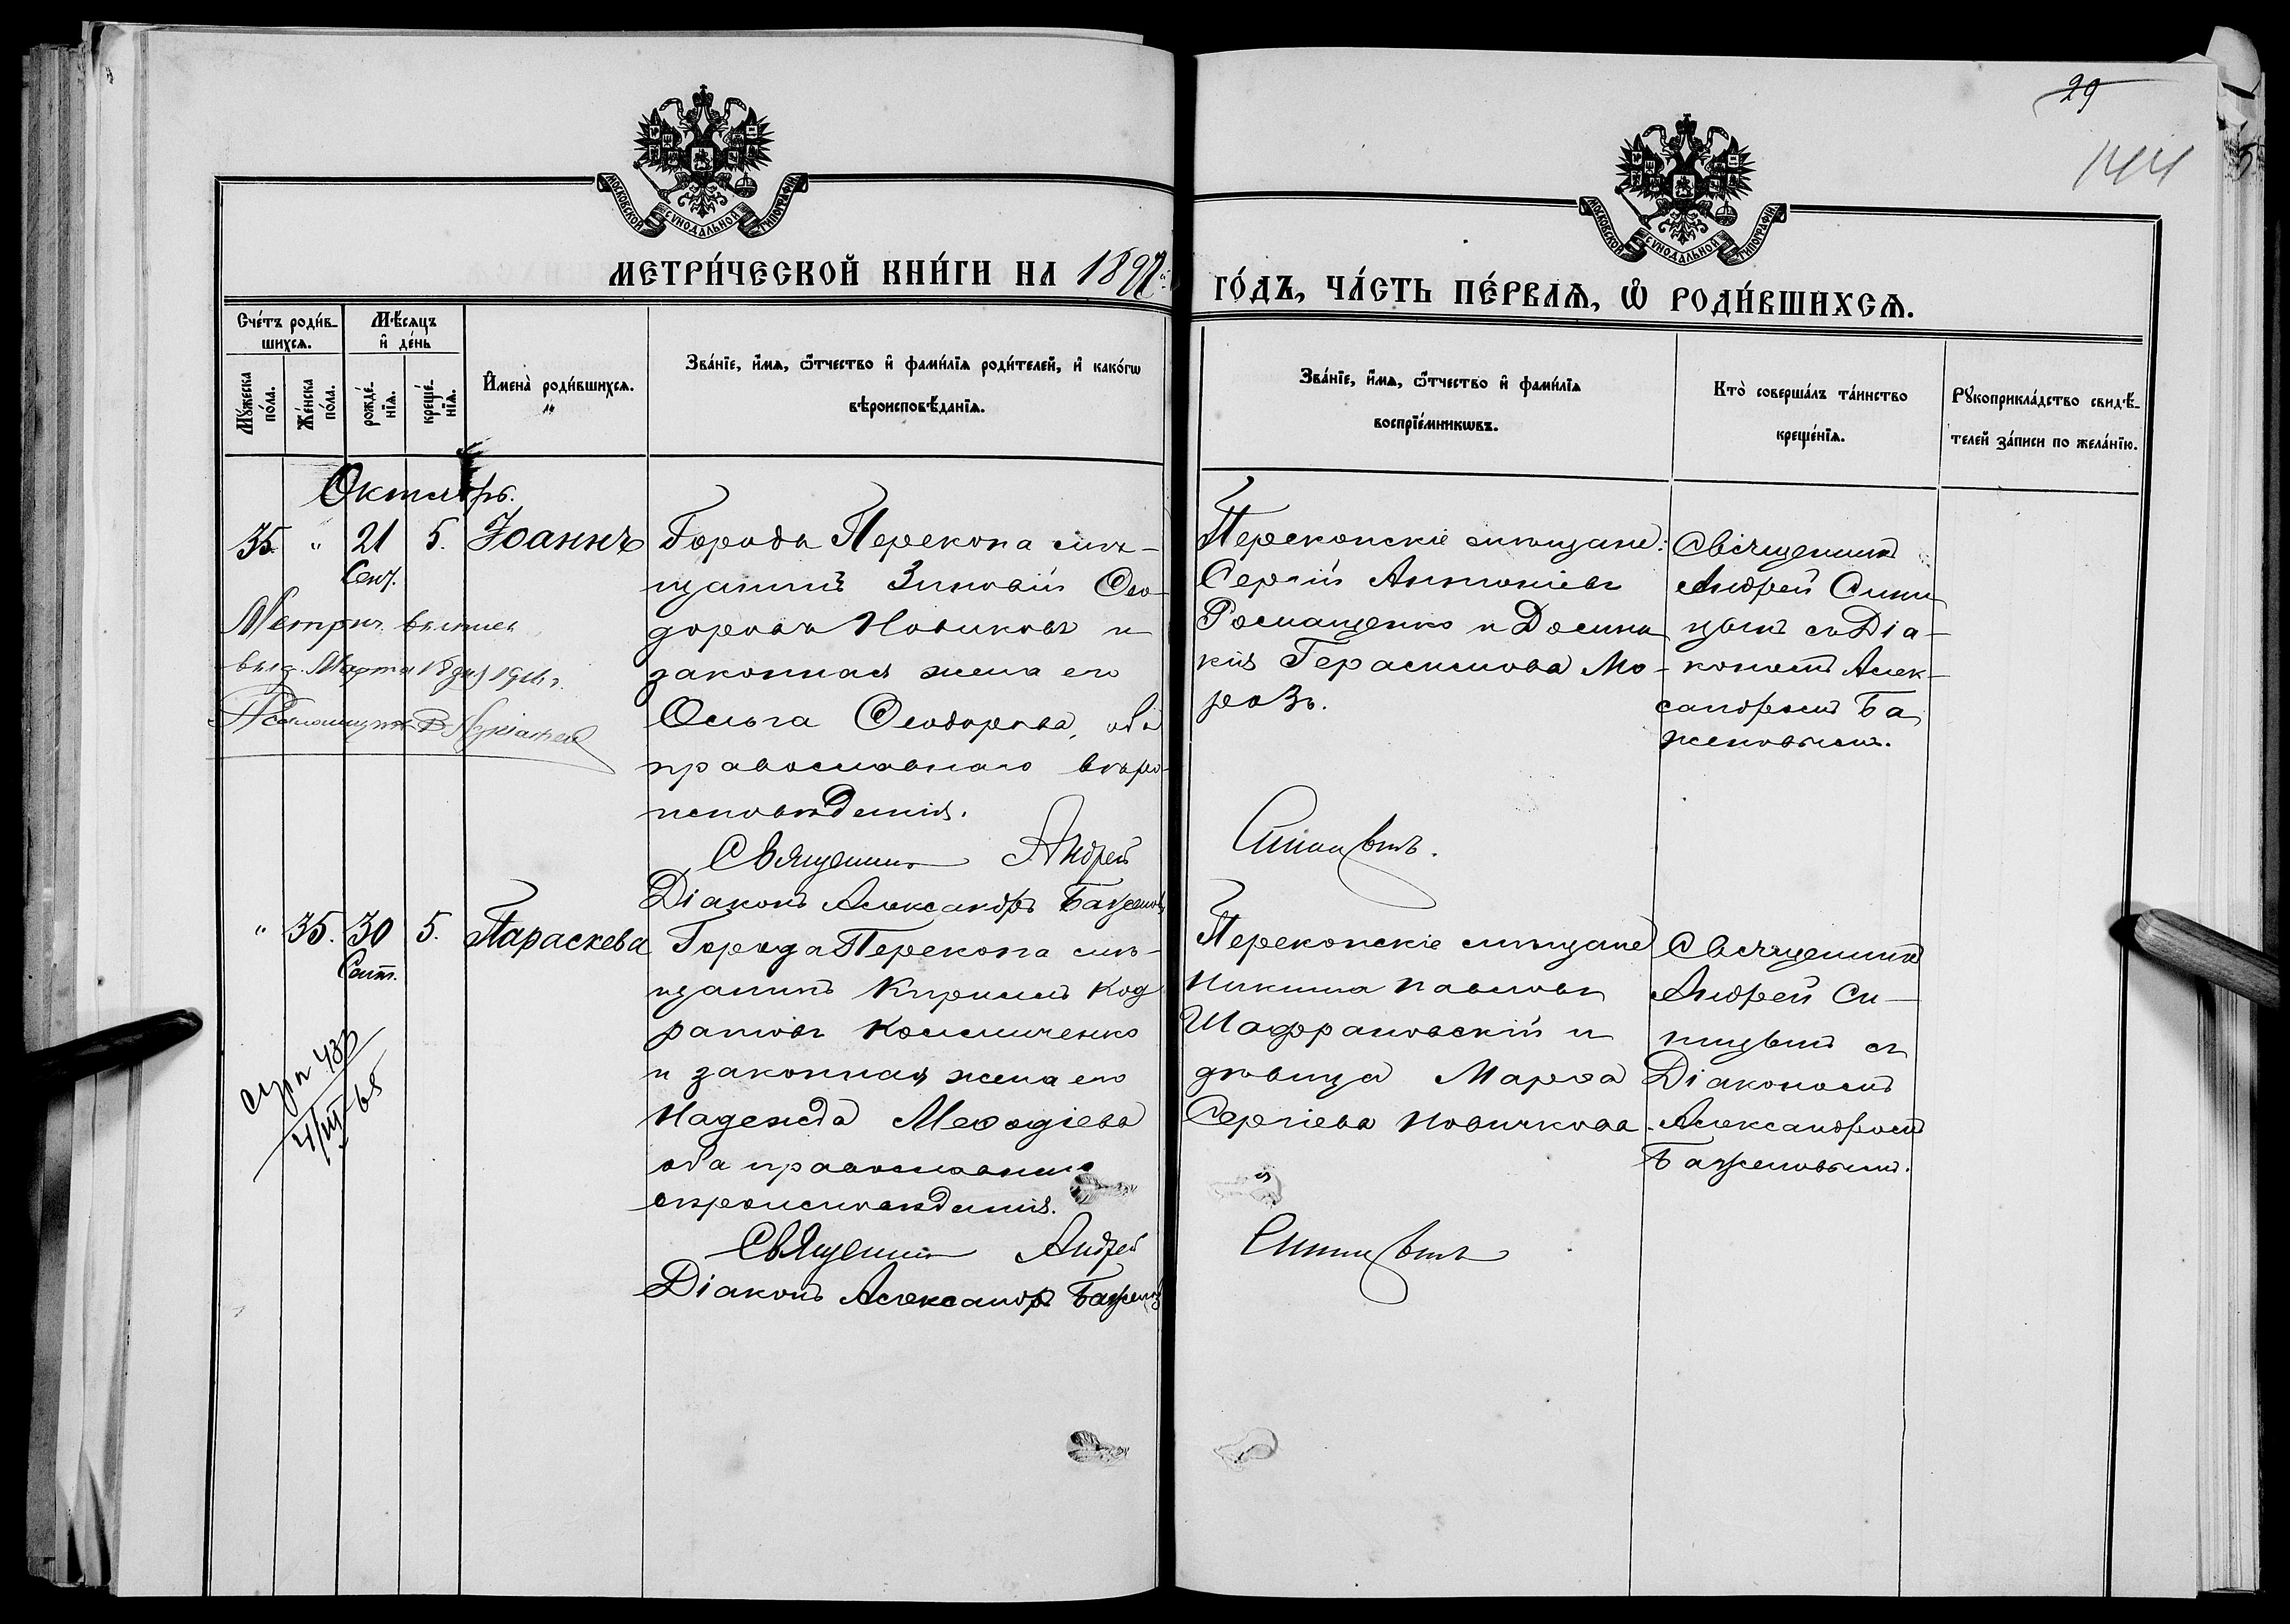 29
144
МОСКОВСКОЙ СѴНОДАЛЬНОЙ ТИПОГРАФІИ
МОСКОВСКОЙ СѴНОДАЛЬНОЙ ТИПОГРАФІИ
МЕТРИ́ЧЕСКОЙ КНИ́ГИ НА
ГО́ДЪ, ЧА́СТЬ ПЕ́РВАѦ, Ѽ РОДИ́ВШИХСѦ.
Сче́тъ роди́в-
шихсѧ.
Мѣ́сѧцъ
и҆ де́нь
Мꙋ́жеска
по́ла.
Же́нска
по́ла.
рожде́-
нїѧ.
креще́-
нїѧ.
И҆мена̀ роди́вшихсѧ.
Зва́нїе, и҆́мѧ, ѻ҆́тчество и҆ фами́лїѧ роди́телей, и҆ како́гѡ
вѣроисповѣ́данїѧ.
Зва́нїе, и҆́мѧ, ѻ҆́тчество и҆ фами́лїѧ
воспрїе́мникѡвъ.
Кто̀ соверша́лъ та́инство
креще́нїѧ.
Рꙋкоприкла́дство свидѣ́-
телей за́писи по жела́нїю.
Октябрь.
35. " 21 5. Іоаннъ
Сент.
Города Перекопа мѣ-
щанинъ Зиновій Ѳео-
доровъ Новиковъ и
законная жена его
Ольга Ѳеодорова, оба
православнаго вѣро-
исповѣданія.
Священникъ Андрей
Діаконъ Александръ Баженовъ
Перекопскіе мѣщане:
Сергій Антоніевъ
Ромащенко и Домни-
кія Герасимова Мо-
розъ.
Синицынъ.
Священникъ
Андрей Сини-
цынъ съ Діа-
кономъ Алек-
сандромъ Ба
женовымъ.
Метрич. выпись
выд. Марта 18 дня
Псаломщикъ В.
" 35. 30 5. Параскева
Сент.
Города Перекопа мѣ-
щанинъ Кириллъ Код
ратовъ
и законная жена его
Надежда Меѳодіева
оба православнаго
вѣроисповѣданія.
Священникъ Андрей
Діаконъ Александръ Баженовъ
Перекопскіе мѣщане
Никита Павловъ
Шафрановскій и
дѣвица Марѳа
Сергіева Новичкова.
Синицынъ
Священникъ
Андрей Си-
ницынъ съ
Діакономъ
Александромъ
Баженовымъ.
4/III-65